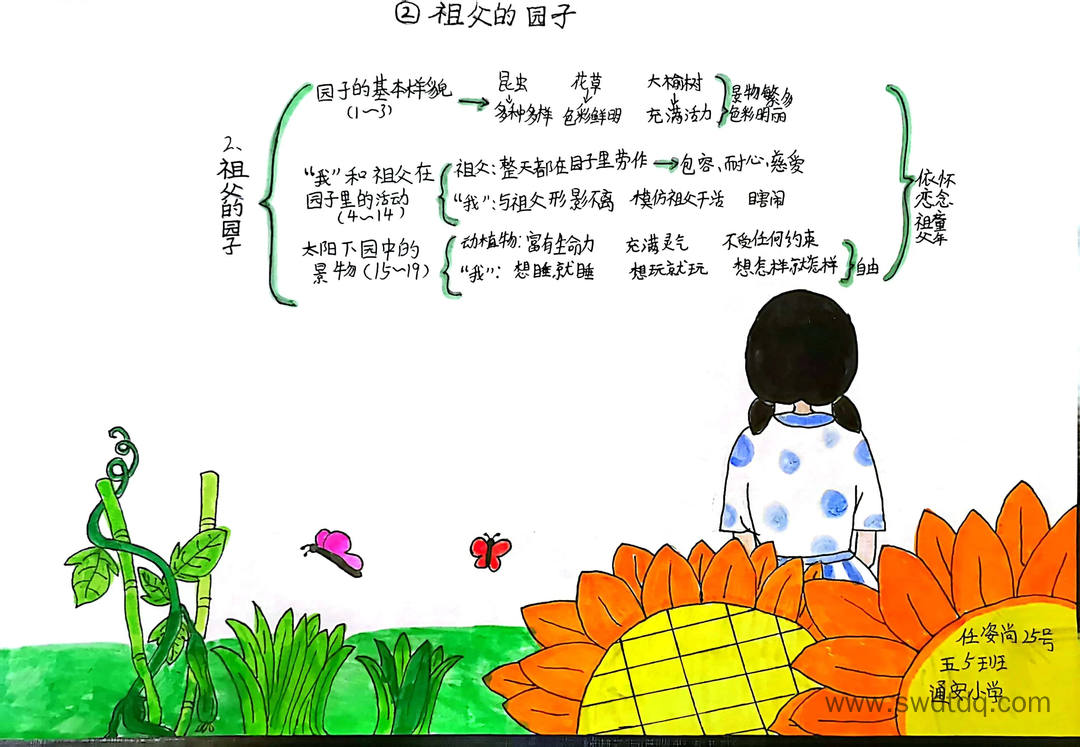 ② 祖父的园子
2、祖父的园子
园子的基本样貌
(1～3)
昆虫 花草 大榆树
多种多样 色彩鲜明 充满活力
景物繁多
色彩明丽
“我”和祖父在
园子里的活动
(4～14)
祖父：整天都在园子里劳作 → 包容、耐心、慈爱
“我”：与祖父形影不离 模仿祖父干活 瞎闹
太阳下园中的
景物(15～19)
动植物：富有生命力 充满灵气 不受任何约束
“我”：想睡就睡 想玩就玩 想怎样就怎样
自由
依怀
恋念
祖童
父年
任姿尚25号
五5班
通安小学
www.swdtdq.com